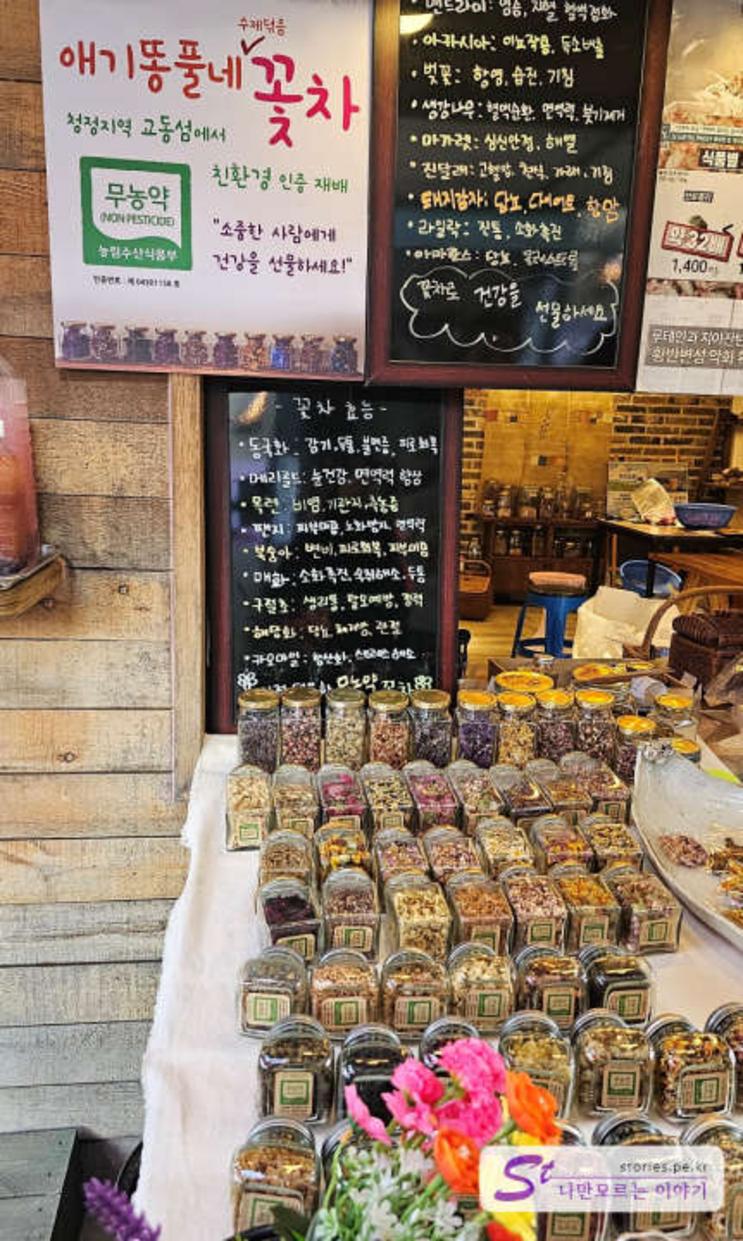 수제덖음
애기똥풀네 꽃차
청정지역 교동섬에서
친환경 인증 재배
무농약
(NON PESTICIDE)
농림수산식품부
"소중한 사람에게
건강을 선물하세요!"
· 아카시아: 이뇨작용,
· 벚꽃: 항염, 습진, 기침
· 생강나무: 혈액순환, 면역력, 붓기제거
· 마가렛: 심신안정, 해열
· 진달래: 고혈압, 천식, 가래, 기침
· 돼지감자: 당뇨, 다이어트, 항암
· 라일락: 진통, 소화촉진
꽃차로 건강을
선물하세요
식품별
약32배
1,400
루테인과 지아잔틴
황반변성 악화
- 꽃차 효능 -
· 동국화 _ 감기, 두통, 불면증, 피로회복
· 메리골드: 눈건강, 면역력 향상
· 목련: 비염, 기관지, 축농증
· 팬지: 피부미용, 노화방지, 면역력
· 복숭아: 변비, 피로회복, 피부미용
· 매화: 소화촉진, 숙취해소, 두통
· 구절초: 생리통, 탈모예방,
· 해당화: 당뇨, 관절
· 카모마일: 항산화, 스트레스해소
무농약 꽃차
St
stories.pe.kr
나만모르는 이야기